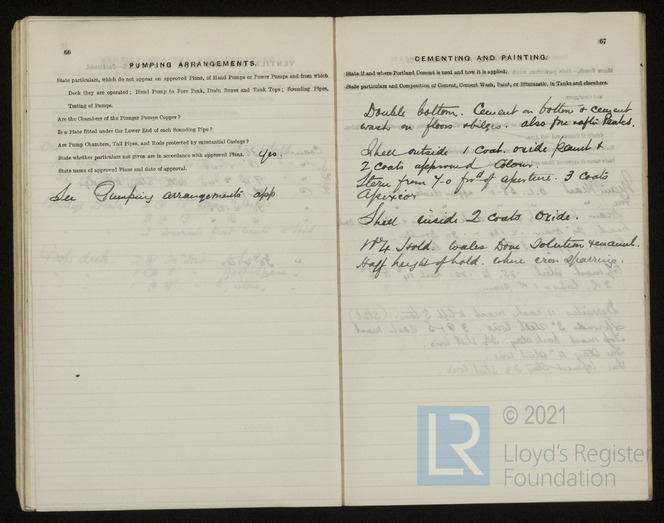 66
PUMPING ARRANGEMENTS.
State particulars, which do not appear on approved Plans, of Hand Pumps or Power Pumps and from which
Deck they are operated; Hand Pump to Fore Peak, Drain Boxes and Tank Tops; Sounding Pipes,
Testing of Pumps.
Are the Chambers of the Plunger Pumps Copper?
Is a Plate fitted under the Lower End of each Sounding Pipe?
Are Pump Chambers, Tail Pipes, and Rods protected by substantial Casings?
State whether particulars not given are in accordance with approved Plans. Yes.
State names of approved Plans and date of approval.
See Pumping arrangements app
67
CEMENTING AND PAINTING.
State if and where Portland Cement is used and how it is applied.
State particulars and Composition of Cement, Cement Wash, Paint, or Bitumastic, in Tanks and elsewhere.
Double bottom. Cement on bottom & cement
wash on floors & bilges. also fore & aft Peaks.
Shell outside 1 Coat oxide paint &
2 coats approved Colour.
Stern from 7-0 of aperture. 3 coats
Apexior
Shell inside 2 coats Oxide.
No 4 hold. Wales Dove Solution & enamel.
Half height of hold. where iron Sparring.
© 2021
LR
Lloyd's Register
Foundation